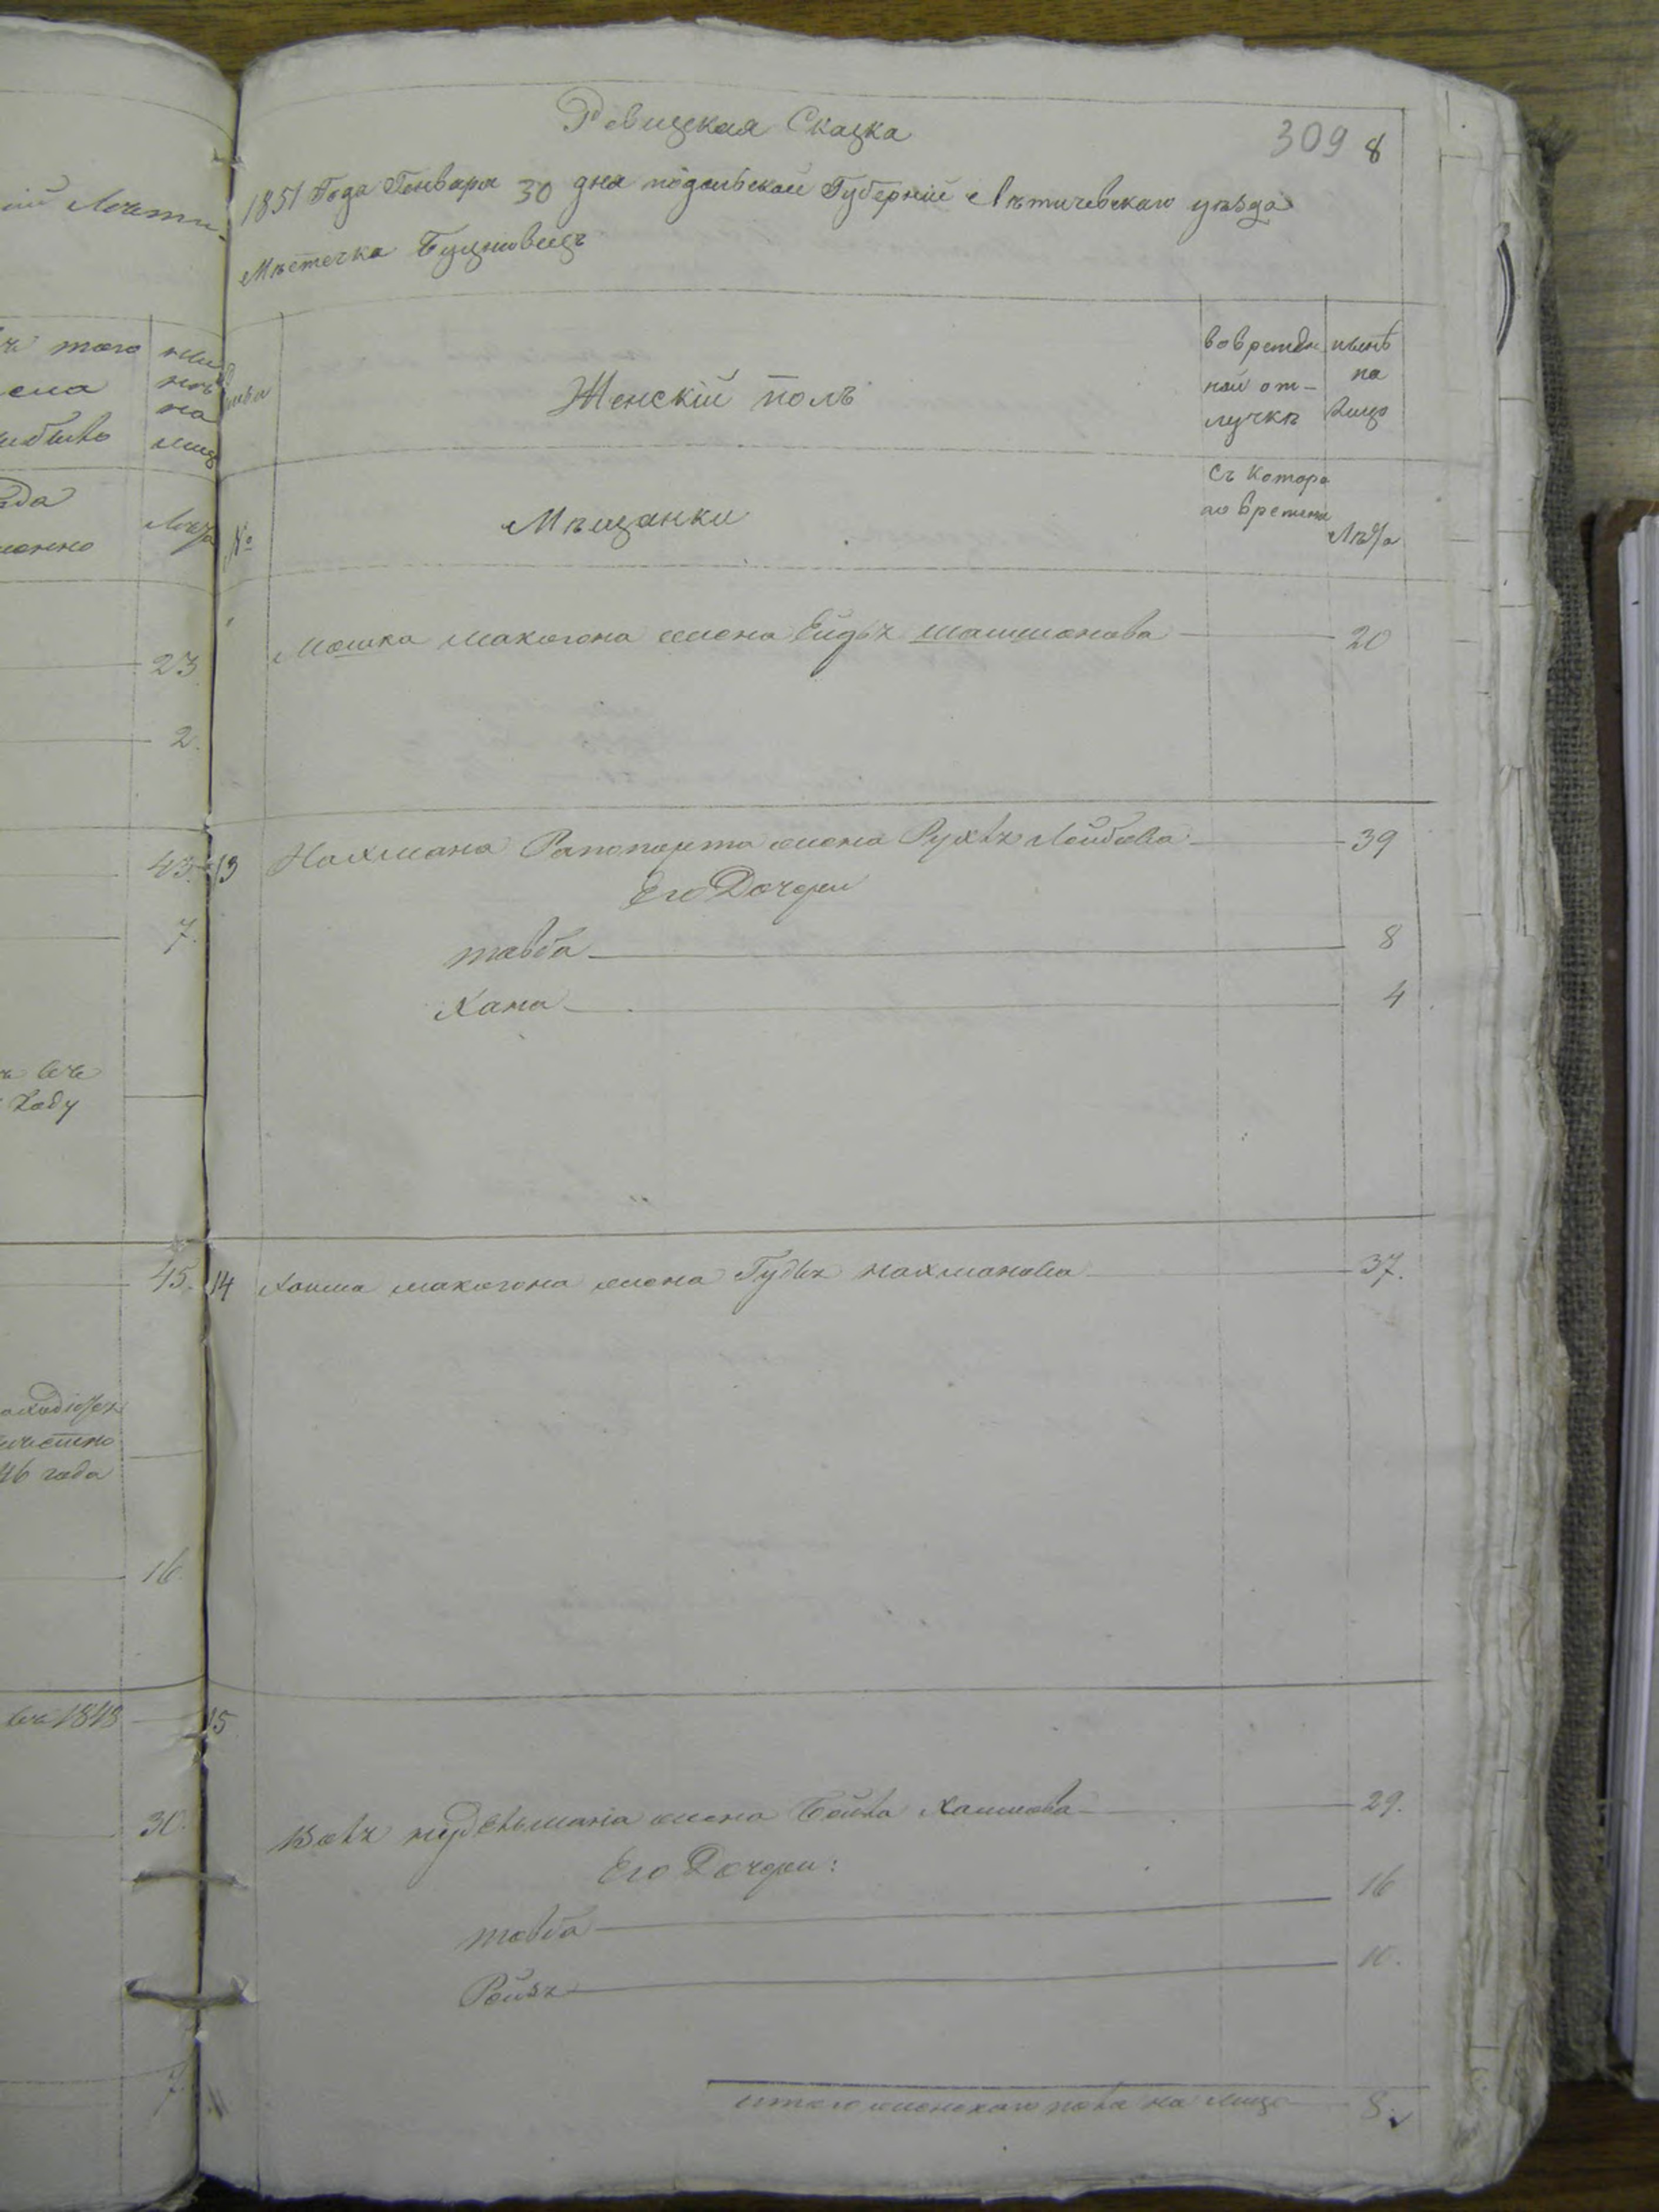 Ревизская Сказка
309 8
1851 Года Генваря 30 дня подольской Губерній Лѣтичевскаго уѣзда
Мѣстечка
Женскій полъ
во времен
ной от-
лучкѣ
нынѣ
на
лицо
№
Мѣщанки
съ котора
го времени
Лѣта
Мошка макогона жена Ейдля
20
13 Нахмана Рапопорта жена Рухля Лейбова
39
Его Дочери
товба
8
Хана
4
14 Хаима макогона жена Гудля нахманова
37.
15
жена Бейла Хаимова
29.
Его Дочери:
товба
16
Рейзя
10.
итого женскаго пола на лицо
8.
23.
2.
43.
7.
45.
46 года
16
1848
30.
7.